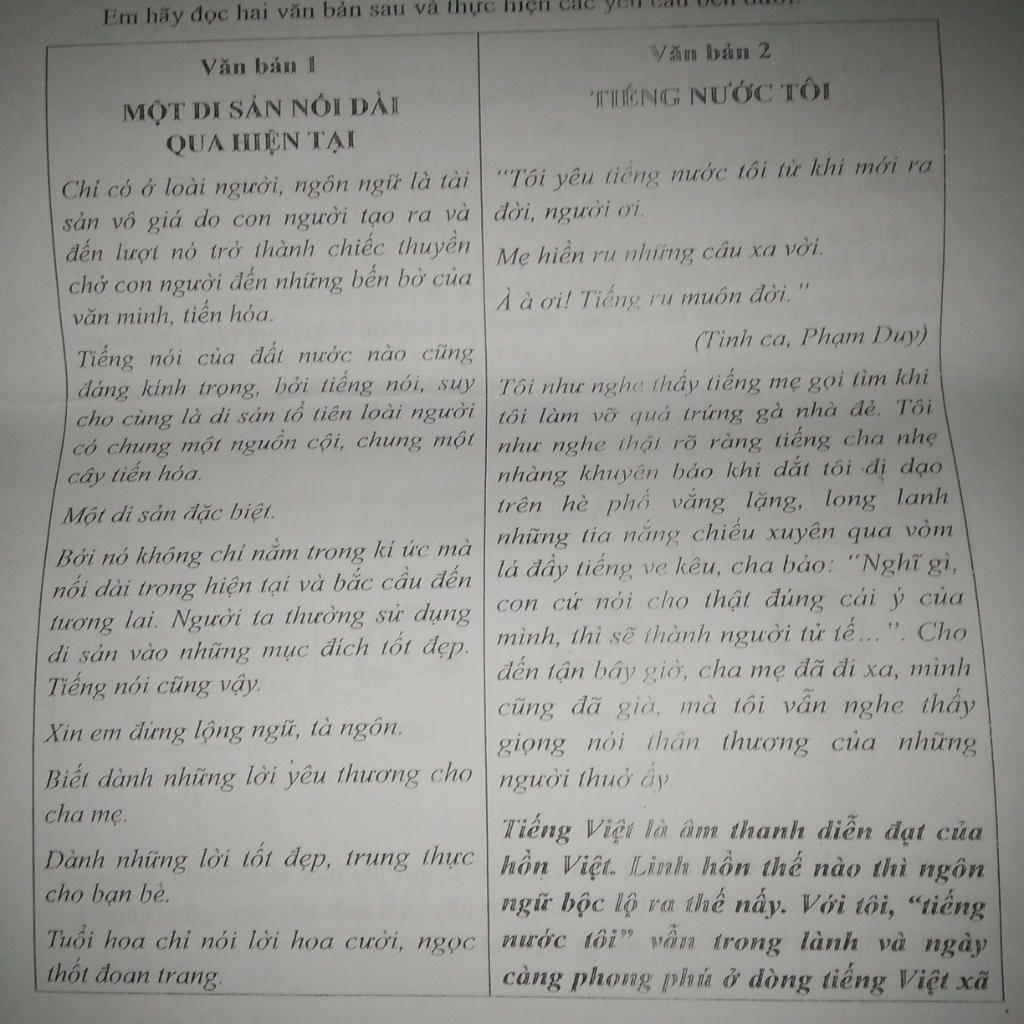 Em hãy đọc hai văn bản sau và thực hiện các yêu cầu bên dưới:
Văn bản 1
MỘT DI SẢN NỐI DÀI
QUA HIỆN TẠI
Chỉ có ở loài người, ngôn ngữ là tài
sản vô giá do con người tạo ra và
đến lượt nó trở thành chiếc thuyền
chở con người đến những bến bờ của
văn minh, tiến hóa.
Tiếng nói của đất nước nào cũng
đáng kính trọng, bởi tiếng nói, suy
cho cùng là di sản tổ tiên loài người
có chung một nguồn cội, chung một
cây tiến hóa.
Một di sản đặc biệt.
Bởi nó không chỉ nằm trong kí ức mà
nối dài trong hiện tại và bắc cầu đến
tương lai. Người ta thường sử dụng
di sản vào những mục đích tốt đẹp.
Tiếng nói cũng vậy.
Xin em đừng lộng ngữ, tà ngôn.
Biết dành những lời yêu thương cho
cha mẹ.
Dành những lời tốt đẹp, trung thực
cho bạn bè.
Tuổi hoa chỉ nói lời hoa cười, ngọc
thốt đoan trang.
Văn bản 2
TIẾNG NƯỚC TÔI
"Tôi yêu tiếng nước tôi từ khi mới ra
đời, người ơi.
Mẹ hiền ru những câu xa vời.
À à ơi! Tiếng ru muôn đời."
(Tình ca, Phạm Duy)
Tôi như nghe thấy tiếng mẹ gọi tìm khi
tôi làm vỡ quả trứng gà nhà đẻ. Tôi
như nghe thật rõ ràng tiếng cha nhẹ
nhàng khuyên bảo khi dắt tôi đi dạo
trên hè phố vắng lặng, long lanh
những tia nắng chiếu xuyên qua vòm
lá đầy tiếng ve kêu, cha bảo: "Nghĩ gì,
con cứ nói cho thật đúng cái ý của
mình, thì sẽ thành người tử tế…". Cho
đến tận bây giờ, cha mẹ đã đi xa, mình
cũng đã già, mà tôi vẫn nghe thấy
giọng nói thân thương của những
người thuở ấy.
Tiếng Việt là âm thanh diễn đạt của
hồn Việt. Linh hồn thế nào thì ngôn
ngữ bộc lộ ra thế nấy. Với tôi, "tiếng
nước tôi" vẫn trong lành và ngày
càng phong phú ở dòng tiếng Việt xã